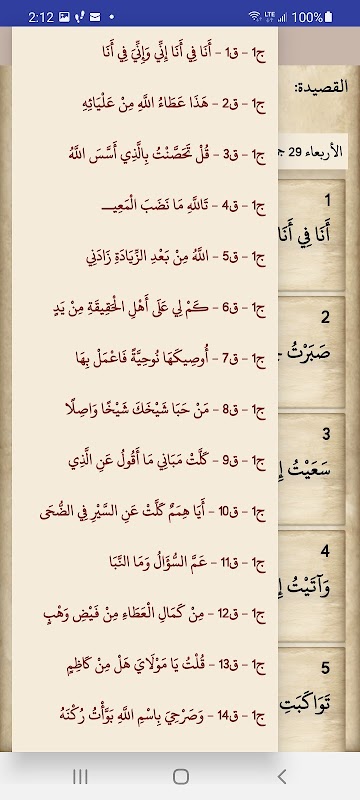 2:12
LTE
100%
ج1 - ق1 - أَنَا فِي أَنَا إِنِّي وَإِنِّيَ فِي أَنَا
ج1 - ق2 - هَذَا عَطَاءُ اللَّهِ مِنْ عَلْيَائِهِ
ج1 - ق3 - قُلْ تَحَصَّنْتُ بِالَّذِي أَسَّسَ اللَّهُ
ج1 - ق4 - تَاللَّهِ مَا نَضَبَ الْمَعِيـــ
ج1 - ق5 - اللَّهُ مِنْ بَعْدِ الزِّيَادَةِ زَادَنِي
ج1 - ق6 - كَمْ لِي عَلَى أَهْلِ الْحَقِيقَةِ مِنْ يَدٍ
ج1 - ق7 - أُوصِيكَهَا نُوحِيَّةً فَاعْمَلْ بِهَا
ج1 - ق8 - مَنْ حَبَا شَيْخَكَ شَيْخًا وَاصِلًا
ج1 - ق9 - كَلَّتْ مَبَانِي مَا أَقُولُ عَنِ الَّذِي
ج1 - ق10 - أَيَا هِمَمٌ كَلَّتْ عَنِ السَّيْرِ فِي الضُّحَى
ج1 - ق11 - عَمَّ السُّؤَالُ وَمَا النَّبَا
ج1 - ق12 - مِنْ كَمَالِ الْعَطَاءِ مِنْ فَيْضِ وَهْبٍ
ج1 - ق13 - قُلْتُ يَا مَوْلَايَ هَلْ مِنْ كَاظِمٍ
ج1 - ق14 - وَصَرْحِيَ بِاسْمِ اللَّهِ بَوَّأْتُ رُكْنَهُ
القصيدة:
الأربعاء 29
1
أَنَا فِي أَنَا
2
صَبَرْتُ
3
سَعَيْتُ
4
وَآتَيْتُ
5
تَوَاكَبَتِ